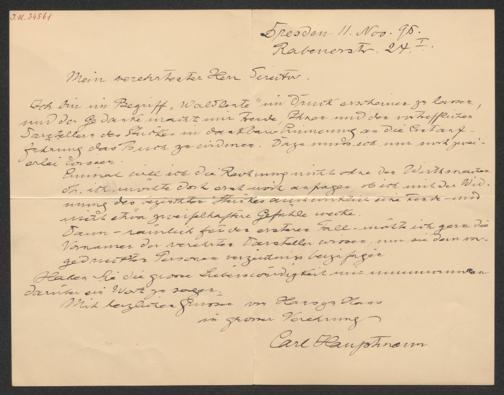 I.N. 34561
Dresden 11. Nov. 95.
Rabenerstr. 24 I.
Mein verehrtester Herr Director.
Ich bin im Begriff, „Waldleute“ im Druck erscheinen zu lassen,
und der Gedanke macht mir Freude Ihnen und den vortrefflichen
Darstellern des Stückes in dankbarer Erinnerung an die Erstauf-
führung das Buch zu widmen. Dazu muss ich nur noch zwei-
erlei wissen.
Einmal will ich die Rechnung nicht ohne den Wirth machen
d. i. ich möchte doch erst anfragen, ob ich mit der Wid-
mung des Stückes auch wirklich eine Freude und
nicht etwa zweifelhafte Gefühle wecke.
Dann – natürlich für den ersteren Fall – möchte ich gern die
Vornamen der verehrten Darsteller wissen, um sie dem
Personenverzeichniss beizufügen.
Haben Sie die grosse Liebenswürdigkeit mir
darüber ein Wort zu sagen.
Mit herzlichen Grüssen von Haus zu Haus
in grosser Verehrung
Carl Hauptmann